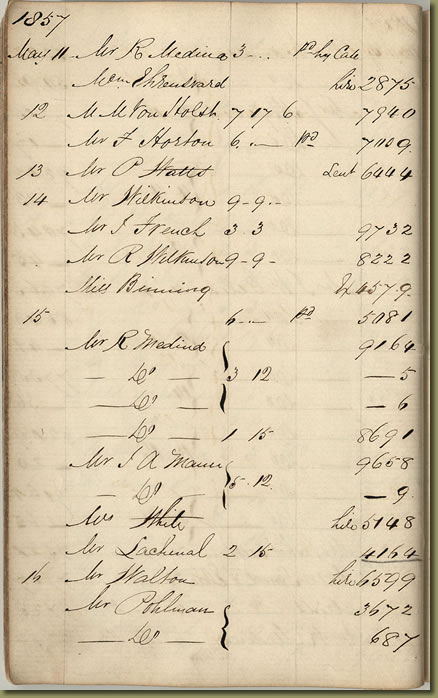 1857
Mar 11 Mr R Medina 3 - .. pd by Cale
Ehrensvard hire 2875
12 M M Von Holst 7 17 6 7940
Mr F Horton 6 .. — pd 7009
13 Mr P Watts Lent 6444
14 Mr Wilkinson 9 - 9 . -
Mr J French 3 3 9732
Mr R Wilkinson 9 - 9 - 8222
Miss Binning 4579
15 6 .. — pd 5081
Mr R Medina 9164
— Do — 3 12 — 5
— Do — — 6
— Do — 1 15 8691
Mr J A Mann 9658
— Do 5 . 12 . — 9
Mrs White hire 5148
Mr Lachenal 2 15 4164
16 Mr Walton hire 6599
Mr Pohlman 3672
— Do — 687